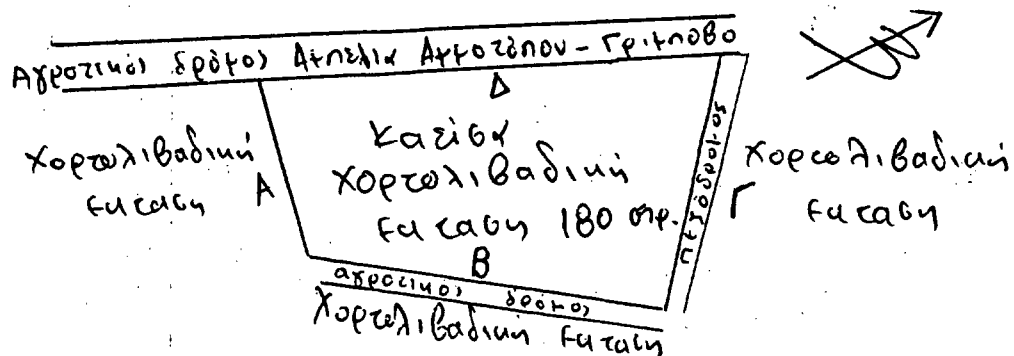 Αγροτικός δρόμος Αμπέλια Αμμοτόπου - Γρίμποβο
Δ
Χορτολιβαδική
έκταση
Α
Κατίσα
Χορτολιβαδική
έκταση 180 στρ.
πεζόδρομος
Γ
Χορτολιβαδική
έκταση
Β
αγροτικός δρόμος
Χορτολιβαδική έκταση